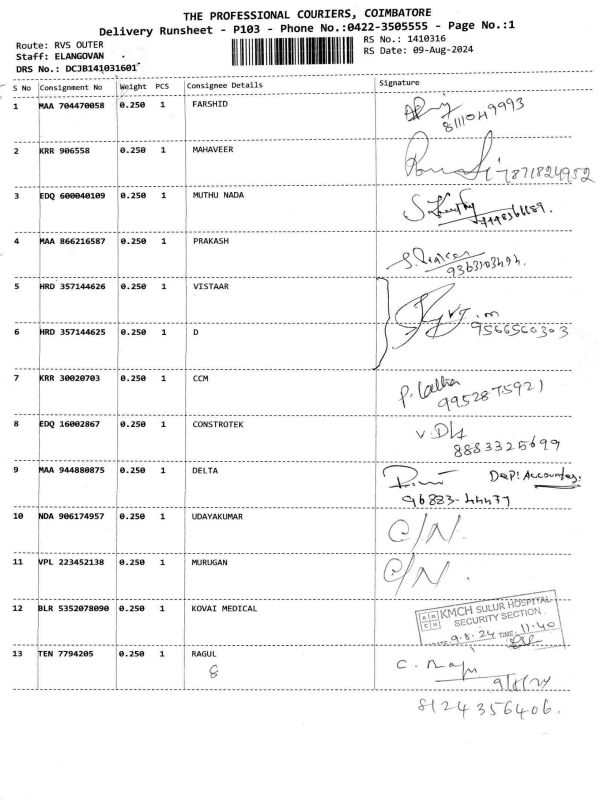 THE PROFESSIONAL COURIERS, COIMBATORE
Delivery Runsheet - P103 - Phone No.:0422-3505555 - Page No.:1
Route: RVS OUTER
RS No.: 1410316
Staff: ELANGOVAN
RS Date: 09-Aug-2024
DRS No.: DCJB141031601
S No Consignment No Weight PCS Consignee Details Signature
1 MAA 704470058 0.250 1 FARSHID
8111049993
2 KRR 906558 0.250 1 MAHAVEER
7871824952
3 EDQ 600040109 0.250 1 MUTHU NADA
4 MAA 866216587 0.250 1 PRAKASH
5 HRD 357144626 0.250 1 VISTAAR
9566560303
6 HRD 357144625 0.250 1 D
7 KRR 30020703 0.250 1 CCM
P. Latha
9952875921
8 EDQ 16002867 0.250 1 CONSTROTEK
8883325699
9 MAA 944880875 0.250 1 DELTA
96883-44477
10 NDA 906174957 0.250 1 UDAYAKUMAR C/N.
11 VPL 223452138 0.250 1 MURUGAN C/N.
12 BLR 5352078090 0.250 1 KOVAI MEDICAL
KMCH SULUR HOSPITAL
SECURITY SECTION
DATE 9.8.24 TIME 11.40
13 TEN 7794205 0.250 1 RAGUL
8
9/8/24
8124356406.